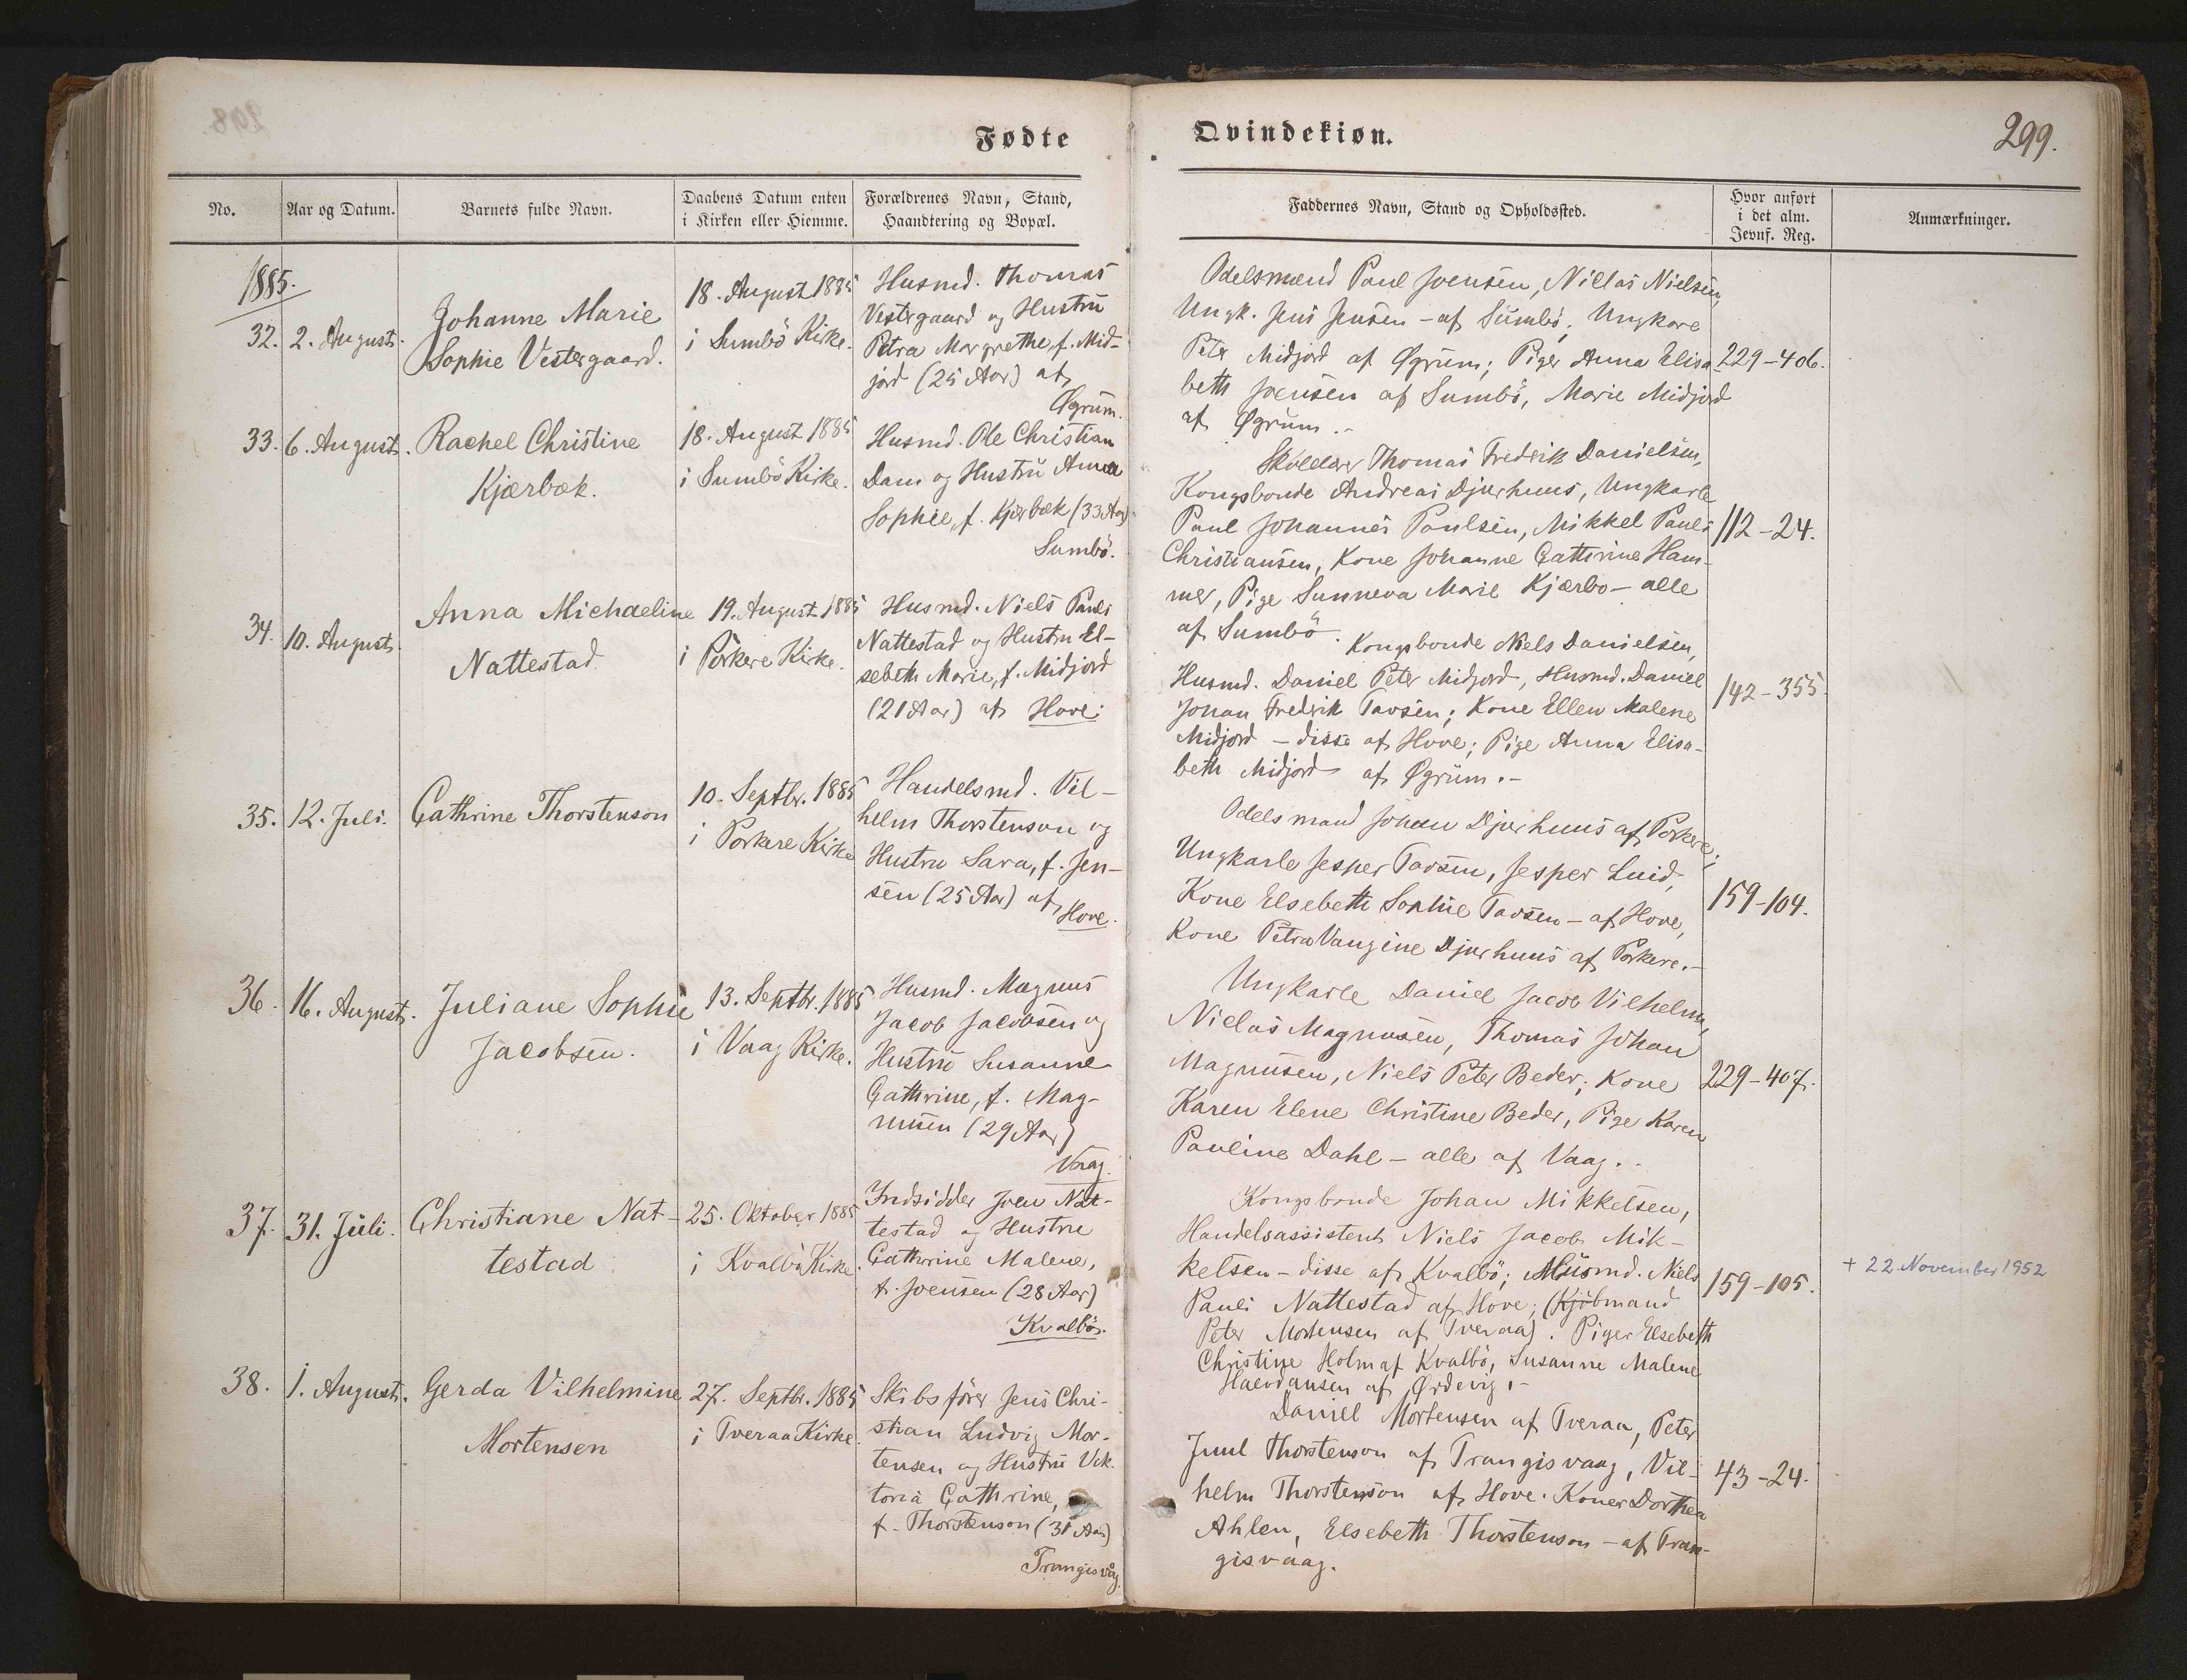 Fødte
Qvindekiøn.
299.
No.
Aar og Datum.
Barnets fulde Navn.
Daabens Datum enten
i Kirken eller Hiemme.
Forældrenes Navn, Stand,
Haandtering og Bopæl.
Faddernes Navn, Stand og Opholdssted.
Hvor anført
i det alm.
Jevnf. Reg.
Anmærkninger.
1885.
32.
2. August.
Johanne Marie
Sophie Vestergaard.
18. August 1885
i Sumbö Kirke.
Husmd. Thomas
Vestergaard og Hustru
Petra Margrethe, f. Mid-
jord (25 Aar) af
Øgrum.
Odelsmænd Paul Joensen, Niclas Nielsen,
Ungk. Jens Jensen - af Sumbö; Ungkare
Peter Midjord af Øgrum; Piger Anna Elisa
beth Joensen af Sumbö, Marie Midjord
af Øgrum.-
229-406.
33.
6. August.
Rachel Christine
Kjærbæk.
18. August 1885
i Sumbö Kirke.
Husmd. Ole Christian
Dam og Hustru Anna
Sophie, f. Kjærbæk (33 Aar)
Sumbö.
Thomas Fredrik Danielsen,
Kongsbonde Andreas Djurhuus, Ungkarle
Paul Johannes Poulsen, Mikkel Pauli
Christiansen, Kone Johanne Cathrine Ham-
mer, Pige Sunneva Marie Kjærbo - alle
af Sumbö.
112-24.
34.
10. August.
Anna Michaeline
Nattestad
19. August 1885
i Porkere Kirke.
Husmd. Niels Pauli
Nattestad og Hustru El-
sebeth Marie, f. Midjord
(21 Aar) af Hove.
Kongsbonde Niels Danielsen,
Husmd. Daniel Peter Midjord, Husmd. Daniel
Johan Fredrik Tavsen; Kone Ellen Malene
Midjord - disse af Hove; Pige Anna Elisa-
beth Midjord af Øgrum.-
142-355.
35.
12. Juli.
Cathrine Thorstenson
10. Septbr. 1885
i Porkere Kirke
Handelsmd. Vil-
helm Thorstenson og
Hustru Sara, f. Jen-
sen (25 Aar) af
Hove.
Odelsmand Johan Djurhuus af Porkere;
Ungkarle Jesper Tavsen, Jesper Luid,
Kone Elsebeth Sophie Tavsen - af Hove,
Kone Petra Vaugine Djurhuus af Porkere.-
159-104.
36.
16. August.
Juliane Sophie
Jacobsen.
13. Septbr. 1885
i Vaag Kirke.
Husmd. Magnus
Jacob Jacobsen og
Hustru Susanne
Cathrine, f. Mag-
nusen (29 Aar)
Vaag.
Ungkarle Daniel Jacob Vilhelm,
Niclas Magnusen, Thomas Johan
Magnusen, Niels Peter Beder; Kone
Karen Elene Christine Beder, Pige Karen
Pauline Dahl - alle af Vaag.-
229-407.
37.
31. Juli.
Christiane Nat-
testad
25. Oktober 1885
i Kvalbö Kirke.
Indsidder Joen Nat-
testad og Hustru
Cathrine Malene,
f. Joensen (28 Aar)
Kvalbö.
Kongsbonde Johan Mikkelsen,
Handelsassistent Niels Jacob Mik-
kelsen - disse af Kvalbö; Husmd. Niels
Pauli Nattestad af Hove; (Kjöbmand
Peter Mortensen af Tveraa). Piger Elsebeth
Christine Holm af Kvalbö, Susanne Malene
af Ørdevig.-
159-105.
+ 22. November 1952
38.
1. August.
Gerda Vilhelmine
Mortensen
27. Septbr. 1885
i Tveraa Kirke.
Skibsförer Jens Chri-
stian Ludvig Mor-
tensen og Hustru Vik-
toria Cathrine,
f. Thorstenson (31 Aar)
Trangisvåg.
Daniel Mortensen af Tveraa, Peter
Juul Thorstenson af Trangisvaag, Vil-
helm Thorstenson af Hove. Koner Dorthea
Ahlen, Elsebeth Thorstenson - af Tran-
gisvaag.
43-24.